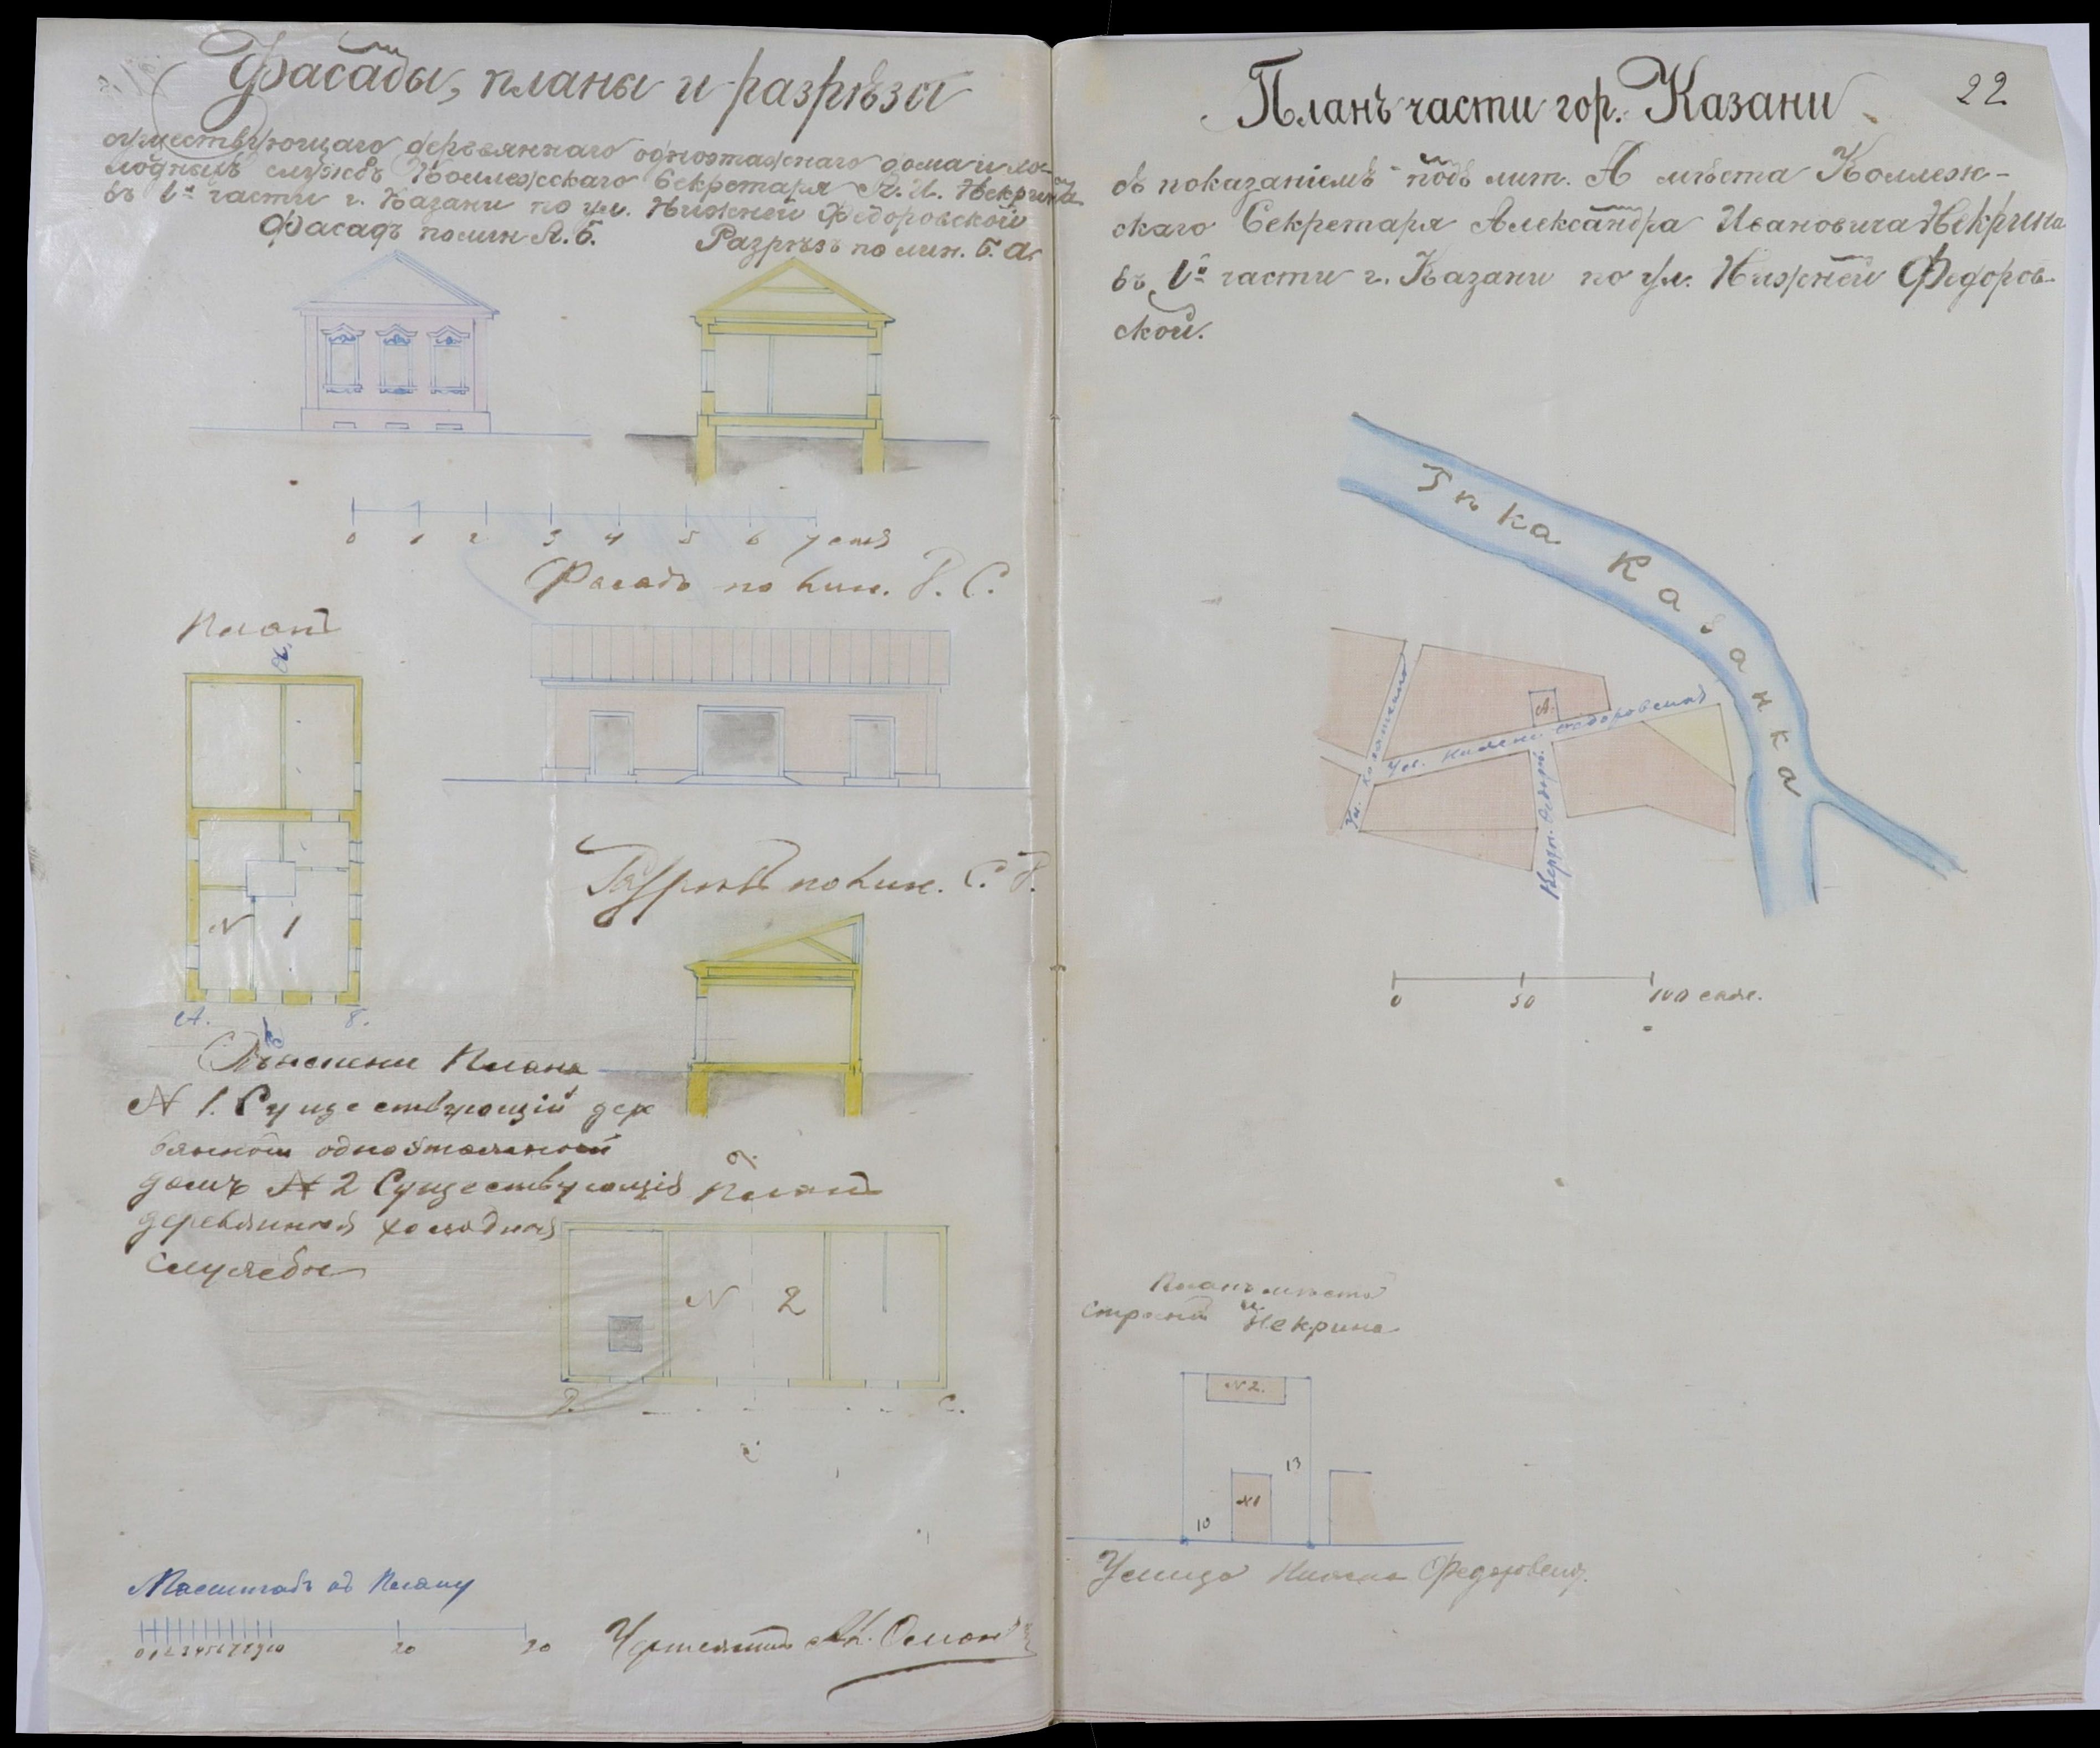 Фасады, планы и разрѣзы
существующаго деревяннаго одноэтажнаго дома и хо-
лодныхъ службъ Коллежскаго Секретаря А. И. Некрина
въ 1й части г. Казани по ул. Нижней Федоровской
Фасадъ по лин. А. Б.
Разрѣзъ по лин. Б. а.
0 1 2 3 4 5 6 7 саж
Фасадъ по лин. Р. С.
Планъ
а.
N 1
А. Б.
б
Разрѣзъ по лин. С. Р.
Объяснение Плана
N 1. Существующій дер
вянной одноэтажной
домъ N 2 Существующія
деревянныя холодныя
службы
Планъ
N 2
Р. С.
с
Масштабъ къ Плану
0 1 2 3 4 5 6 7 8 9 10 20 30
Чертежникъ
22
Планъ части гор. Казани
съ показаніемъ подъ лит. А мѣста Коллеж-
скаго Секретаря Александра Ивановича Некрина
въ 1й части г. Казани по ул. Нижней Федоров-
ской.
Рѣка Казанка
А.
Ул. Нижне Федоровская
Ул.
Верхн. Федор.
0 50 100 саж.
Планъ мѣста
строений Некрина
N 2.
13
N 1
10
Улица Нижне Федоровская